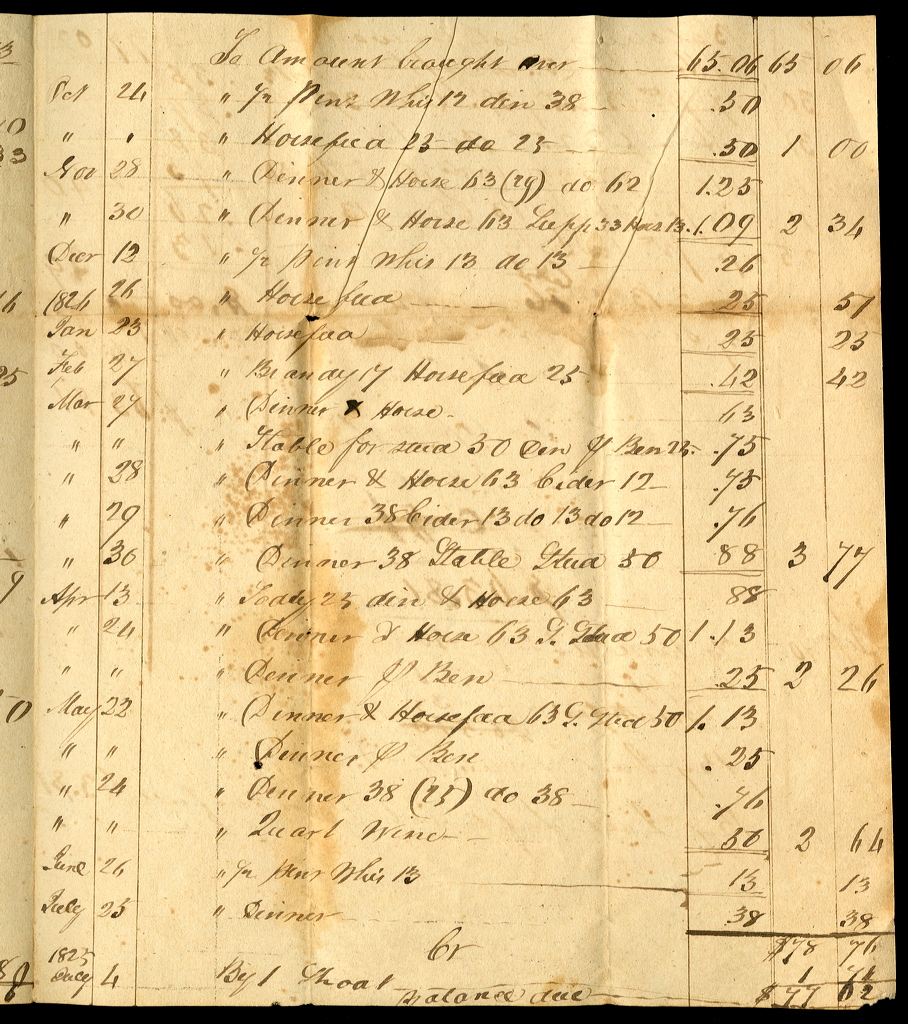 To Amount brought over 65.06 65 06
Oct 24 " 1/2 Pint Whis 12 din 38 .50
" " " Horsefeed 25 do 25 .50 1 00
Nov 28 " Dinner & Horse 63 (29) do 62 1.25
" 30 " Dinner & Horse 63 Supp 33 Hors 13 1.09 2 34
Decr 12 " 1/2 Pint Whis 13 do 13 .26
26 " Horse feed 25 51
1826
Jan 23 " Horsefeed 25 25
Feb 27 " Brandy 17 Horsefeed 25 .42 42
Mar 27 " Dinner & Horse 63
" " " Stable for stud 50 Din f Ben 25 .75
" 28 " Dinner & Horse 63 Cider 12 .75
" 29 " Dinner 38 Cider 13 do 13 do 12 .76
" 30 " Dinner 38 Stable Stud 50 88 3 77
Apr 13 " Today 25 din & Horse 63 88
" 24 " Dinner & Horse 63 S. Stud 50 1.13
" " " Dinner f Ben .25 2 26
May 22 " Dinner & Horsefeed 63 S. Stud 50 1.13
" " " Dinner f Ben .25
" 24 " Dinner 38 (25) do 38 .76
" " " Quart Wine 50 2 64
June 26 " 1/2 Pint Whis 13 13 13
July 25 " Dinner .38 38
Cr $78 76
1825
4 By 1 Shoat 1
Balance due $77 62